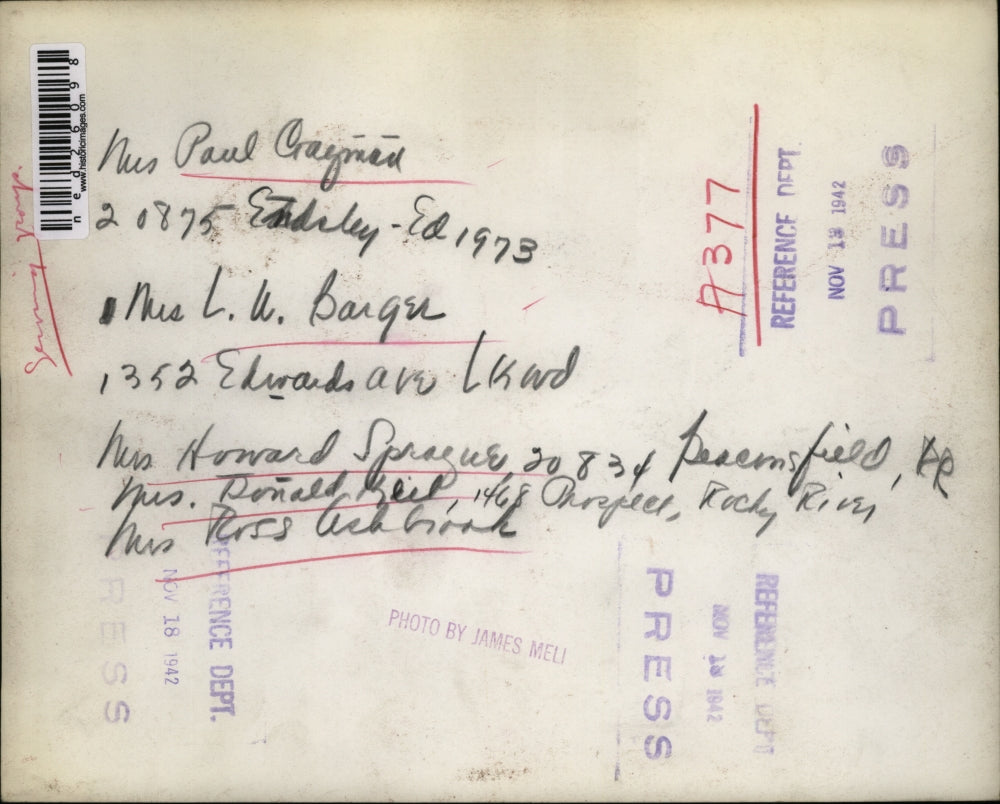 Mrs Paul
20875 Endsley - Ed 1973
Mrs L. W. Barger
1352 Edwards ave Lkwd
Mrs Howard Sprague, 20834 Beaconsfield, RR
Mrs. Donald 1468 Prospect, Rocky River
Mrs Ross Ashbrook
A377
REFERENCE DEPT.
NOV 18 1942
PRESS
PHOTO BY JAMES MELI
PRESS
NOV 18 1942
REFERENCE DEPT.
PRESS
NOV 1942
REFERENCE DEPT
ned26098
www.historicimages.com